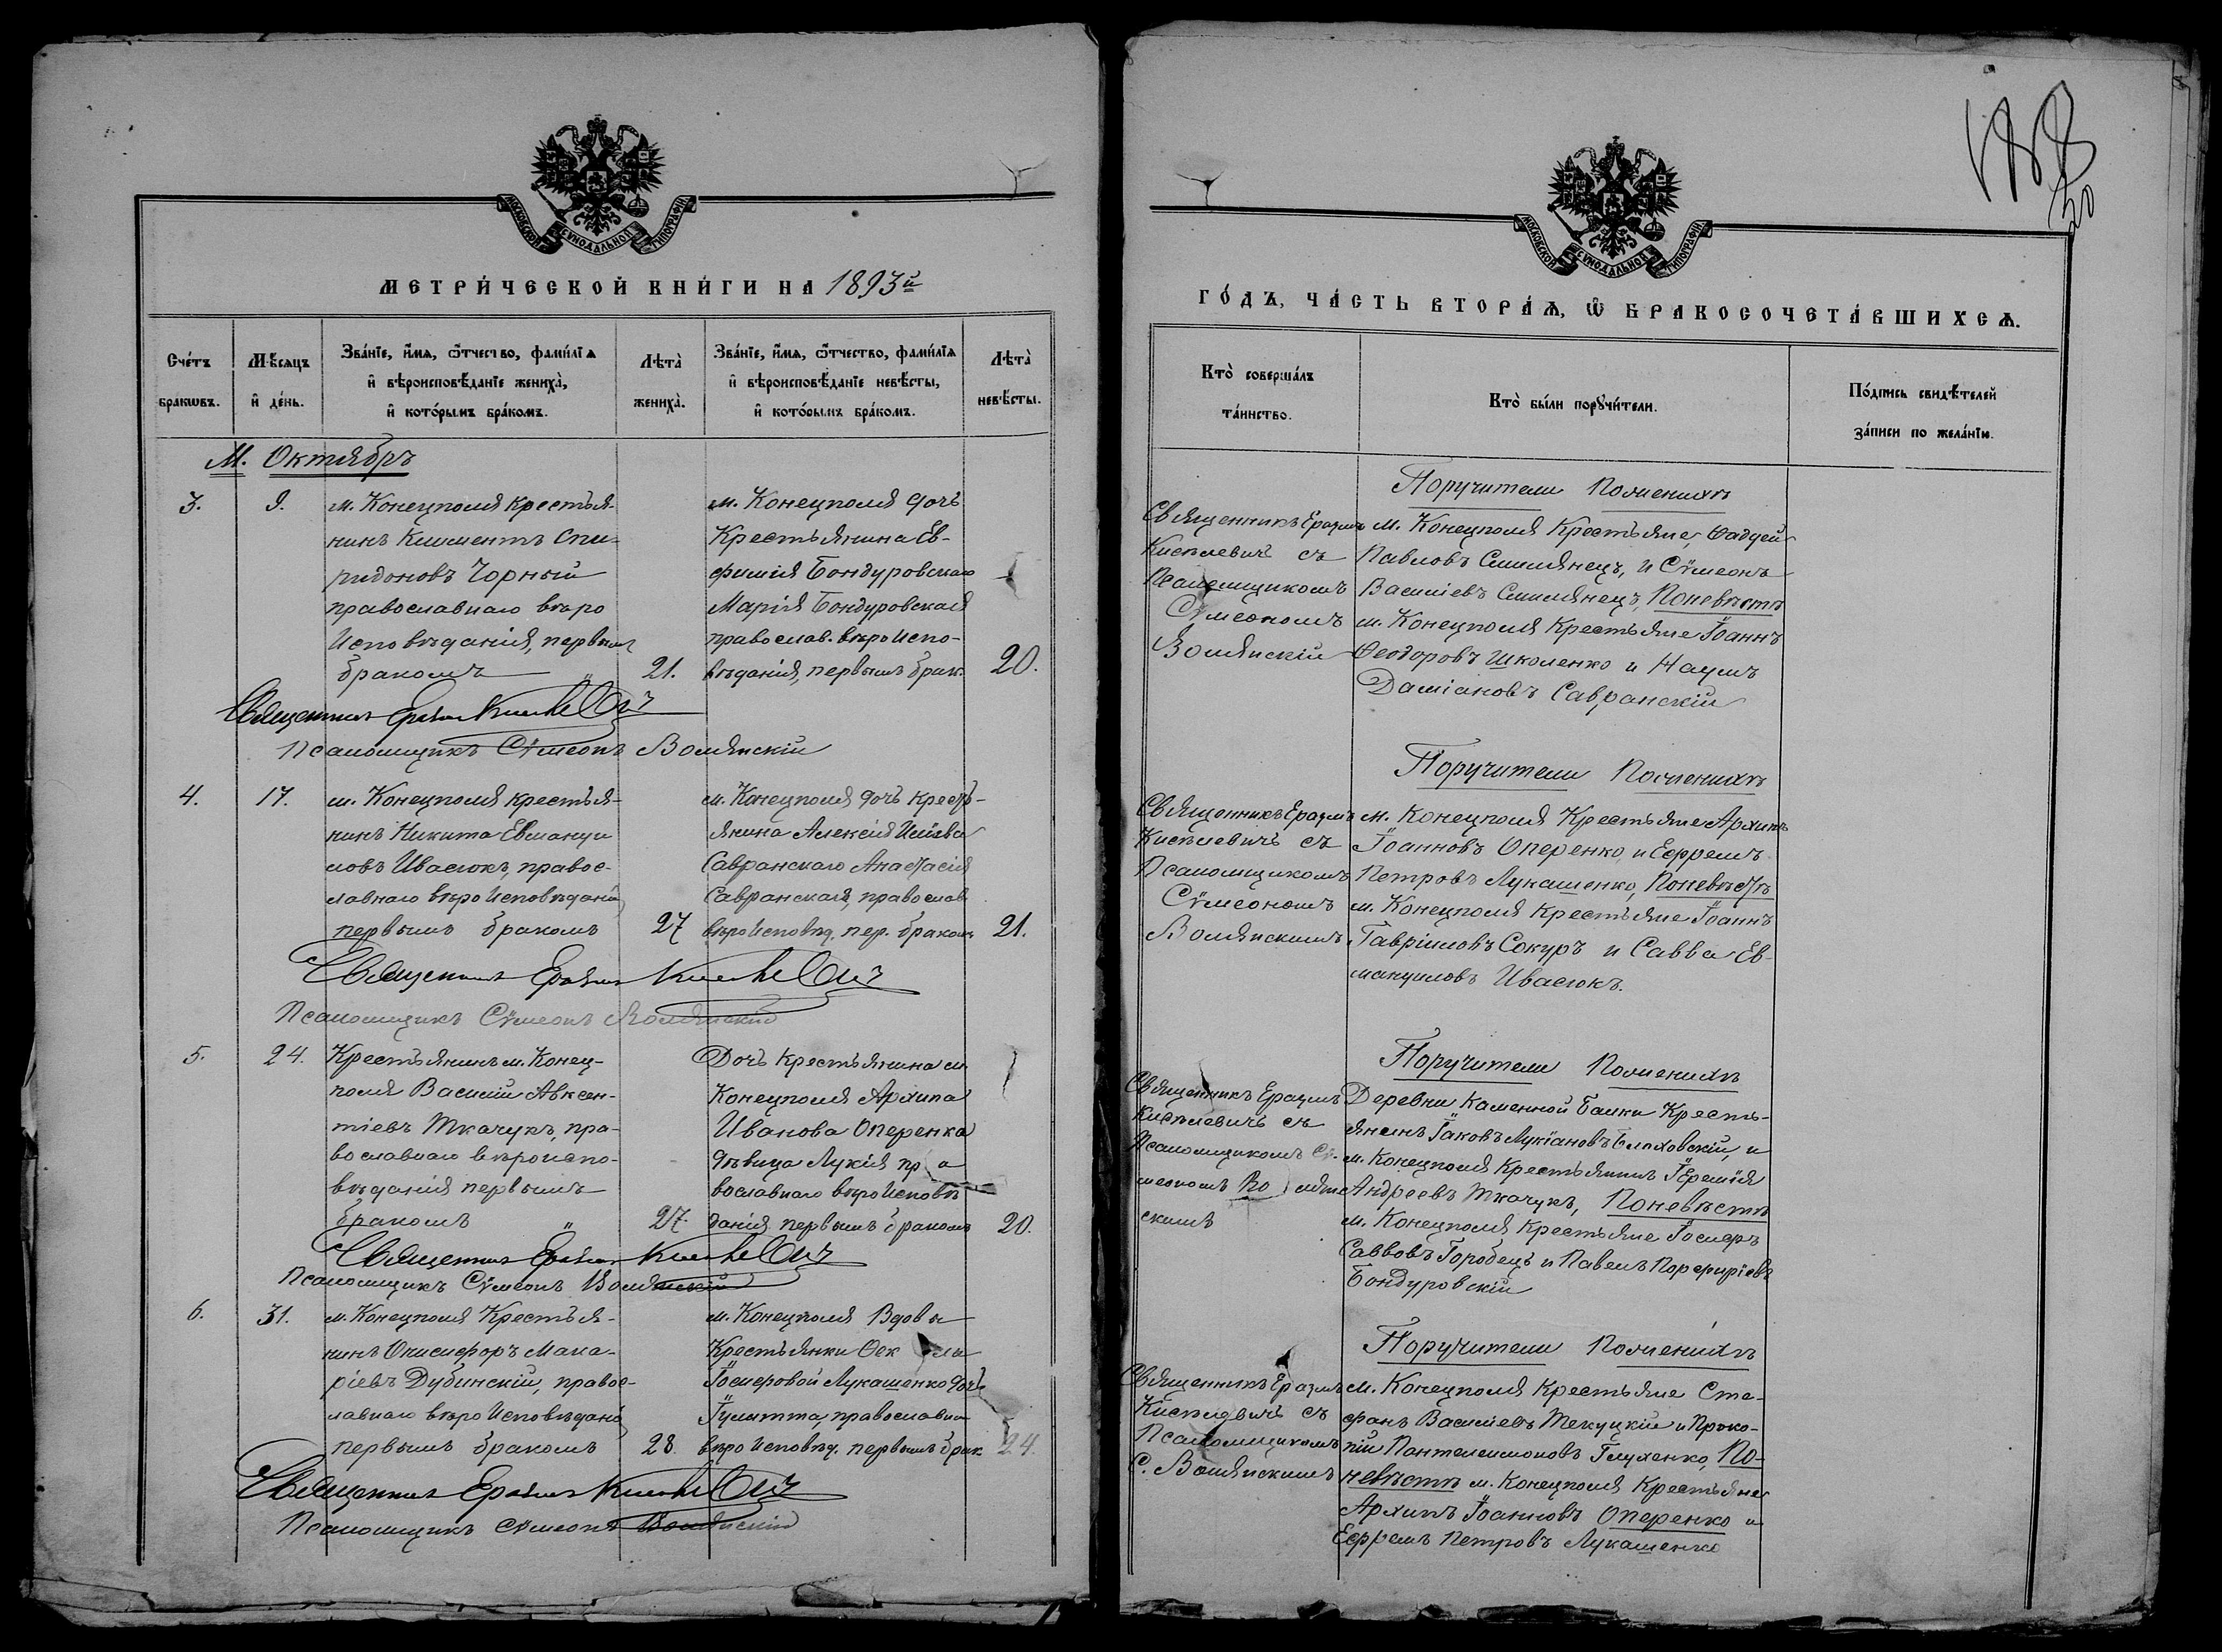 МОСКОВСКОЙ СѴНОДАЛЬНОЙ ТИПОГРАФІИ
МЕТРИ́ЧЕСКОЙ КНИ́ГИ НА 1893й
Сче́тъ бракѡвъ.
Мѣ́сяцъ и҆ де́нь.
Зва́нїе, и҆́мѧ, ѻ҆́тчество, фами́лїѧ
и҆ вѣроисповѣ́данїе жениха̀,
и҆ кото́рымъ бра́комъ.
Лѣта̀ жениха̀.
Зва́нїе, и҆́мѧ, ѻ҆́тчество, фами́лїѧ
и҆ вѣроисповѣ́данїе невѣ́сты,
и҆ кото́рымъ бра́комъ.
Лѣта̀ невѣ́сты.
М. Октябрь
3.
9.
м. Конецполя крестья-
нинъ Климентъ Спи-
ридоновъ Чорный
православнаго вѣро
исповѣданія, первым
бракомъ
21.
м. Конецполя дочь
Крестьянина Ев-
фимія Бондуровскаго
Марія Бондуровская
православ. вѣроиспо-
вѣданія, первымъ брак.
20.
Священникъ Еразмъ Киселевичъ
Псаломщикъ Сѵмеонъ Волянскій
4.
17.
м. Конецполя крестья-
нинъ Никита Евмануи
ловъ Ивасюкъ, правос-
лавнаго вѣроисповѣданія
первымъ бракомъ
27
м. Конецполя дочь крест-
янина Алексія Иліева
Савранскаго Анастасія
Савранская, православ
вѣроисповѣд. пер. бракомъ
21.
Священникъ Еразмъ Киселевичъ
Псаломщикъ Сѵмеонъ Волянскій
5.
24.
Крестьянинъ м. Конец-
поля Василій Авксен-
тіевъ Ткачукъ, пра-
вославнаго вѣроиспо-
вѣданія первымъ
бракомъ
27.
Дочь крестьянина м.
Конецполя Архипа
Иванова Оперенка
дѣвица Лукія пра
вославнаго вѣроисповѣ
данія первымъ бракомъ
20.
Священникъ Еразмъ Киселевичъ
Псаломщикъ Сѵмеонъ Волянскій
6.
31.
м. Конецполя Крестья-
нинъ Онисифоръ Мака-
ріевъ Дубинскій, правос-
лавнаго вѣроисповѣданія
первымъ бракомъ
28.
м. Конецполя Вдовы
Крестьянки Ѳек лы
Іосифовой Лукашенко дочь
Іулитта, православна
вѣроисповѣд. первымъ брак
24.
Священникъ Еразмъ Киселевичъ
Псаломщикъ Сѵмеонъ Волянскій
188
30
МОСКОВСКОЙ СѴНОДАЛЬНОЙ ТИПОГРАФІИ
ГО́ДЪ, ЧА́СТЬ ВТОРА́Ѧ, Ѽ БРАКОСОЧЕТА́ВШИХСѦ.
Кто̀ соверша́лъ та́инство.
Кто̀ бы́ли порꙋчи́тели.
По́дпись свидѣ́телей
за́писи по жела́нїю.
Священникъ Еразмъ
Киселевичъ съ
Псаломщикомъ
Сѵмеономъ
Волянскій
Поручители По женихѣ
м. Конецполя Крестьяне, Ѳаддей
Павловъ Смилянецъ, и Сѵмеонъ
Василіевъ Смилянецъ, По невѣстѣ
м. Конецполя Крестьяне Іоаннъ
Ѳеодоровъ Школенко и Наумъ
Даміановъ Савранскій
Священникъ Еразмъ
Киселевичъ съ
Псаломщикомъ
Сѵмеономъ
Волянскимъ
Поручители По женихѣ
м. Конецполя Крестьяне Архипъ
Іоанновъ Оперенко, и Ефремъ
Петровъ Лукашенко, По невѣстѣ
м. Конецполя Крестьяне Іоаннъ
Гавріиловъ Сокуръ и Савва Ев-
мануиловъ Ивасюкъ.
Священникъ Еразмъ
Киселевичъ съ
Псаломщикомъ Сѵ-
меономъ Во лян
скимъ
Поручители По женихѣ
Деревни Каменной Балки Кресть-
янинъ Іаковъ Лукіановъ и
м. Конецполя Крестьянинъ Іеремія
Андреевъ Ткачукъ, По невѣстѣ
м. Конецполя Крестьяне Іосифъ
Саввовъ Горобецъ и Павелъ Порфиріевъ
Бондуровскій
Священникъ Еразмъ
Киселевичъ съ
Псаломщикомъ
С. Волянскимъ
Поручители По женихѣ
м. Конецполя Крестьяне Сте-
фанъ Василіевъ Текуцкій и Проко-
пій Пантелеимоновъ Глухенко, По-
невѣстѣ м. Конецполя Крестьяне
Архипъ Іоанновъ Оперенко и
Ефремъ Петровъ Лукашенко